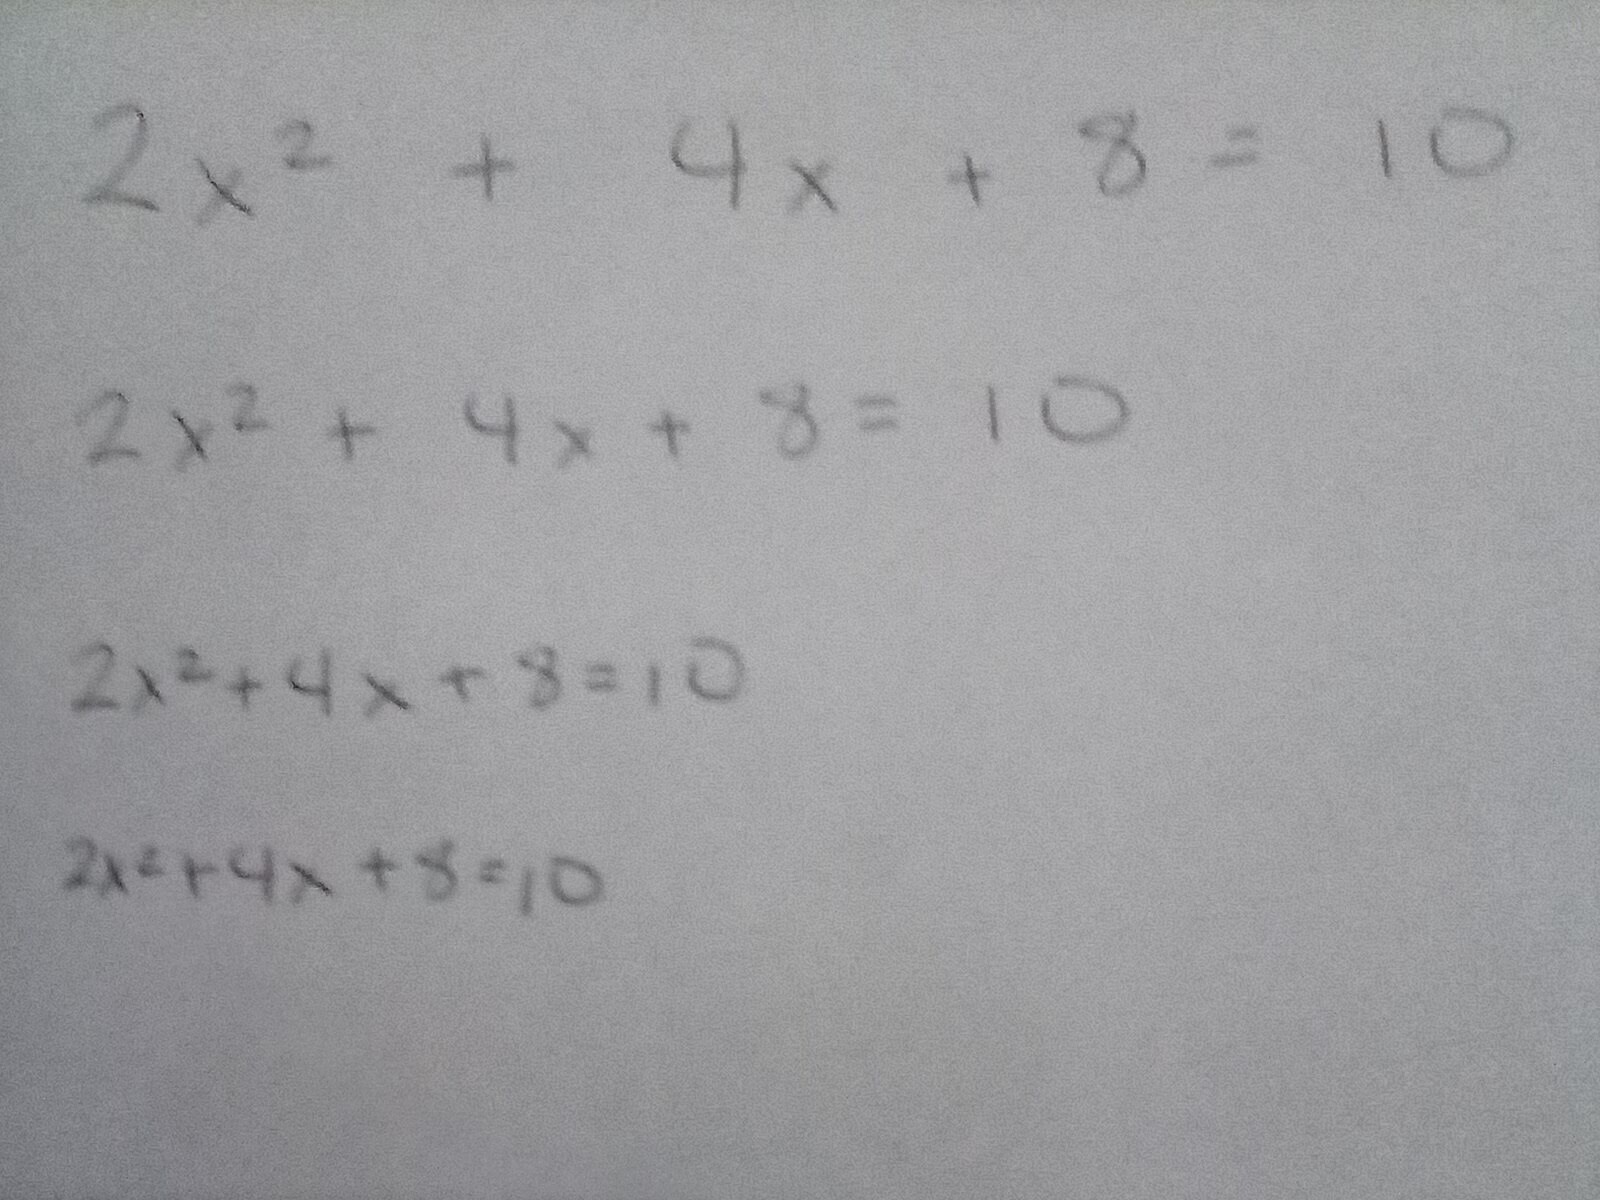 2x² + 4x + 8 = 10
2x² + 4x + 8 = 10
2x²+4x+8=10
2x²+4x+8=10